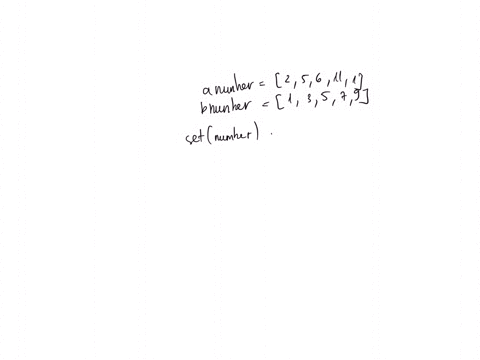 anumber = [2, 5, 6, 11, 1]
bnumber = [1, 3, 5, 7, 9]
set(number) .